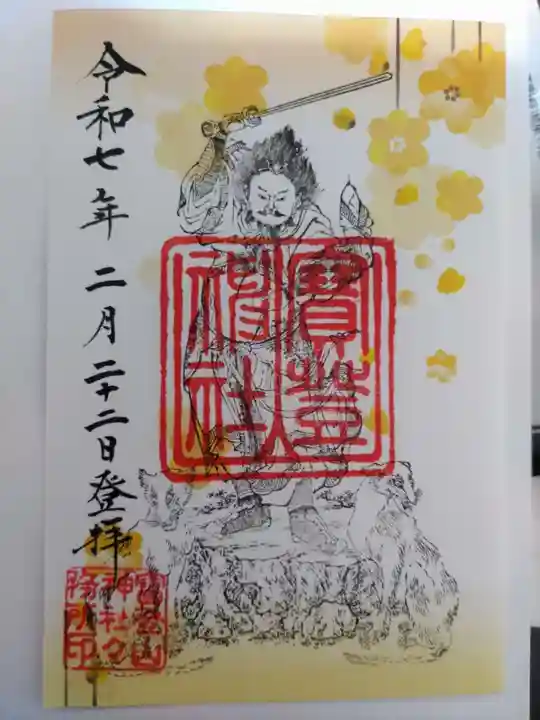 寳登
神社
令和七年 二月二十二日登拝
寳登山
神社分
務所印